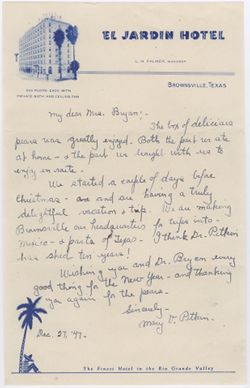 EL JARDIN HOTEL
L. M. PALMER, MANAGER
200 ROOMS, EACH WITH
PRIVATE BATH AND CEILING FAN
BROWNSVILLE, TEXAS
My dear Mrs. Bryan:-
The box of delicious
pears was greatly enjoyed. Both the part we ate
at home - & the part we brought with us to
enjoy en route.
We started a couple of days before
Christmas - and are having a truly
delightful vacation & trip. We are making
Brownsville our headquarters for trips into
Mexico - & parts of Texas - I think Dr. Pitkin
has shed ten years!
Wishing you and Dr. Bryan every
good thing for the New Year - and thanking
you again for the pears.
Sincerely -
Mary V. Pitkin.
Dec. 27, '47.
The Finest Hotel in the Rio Grande Valley